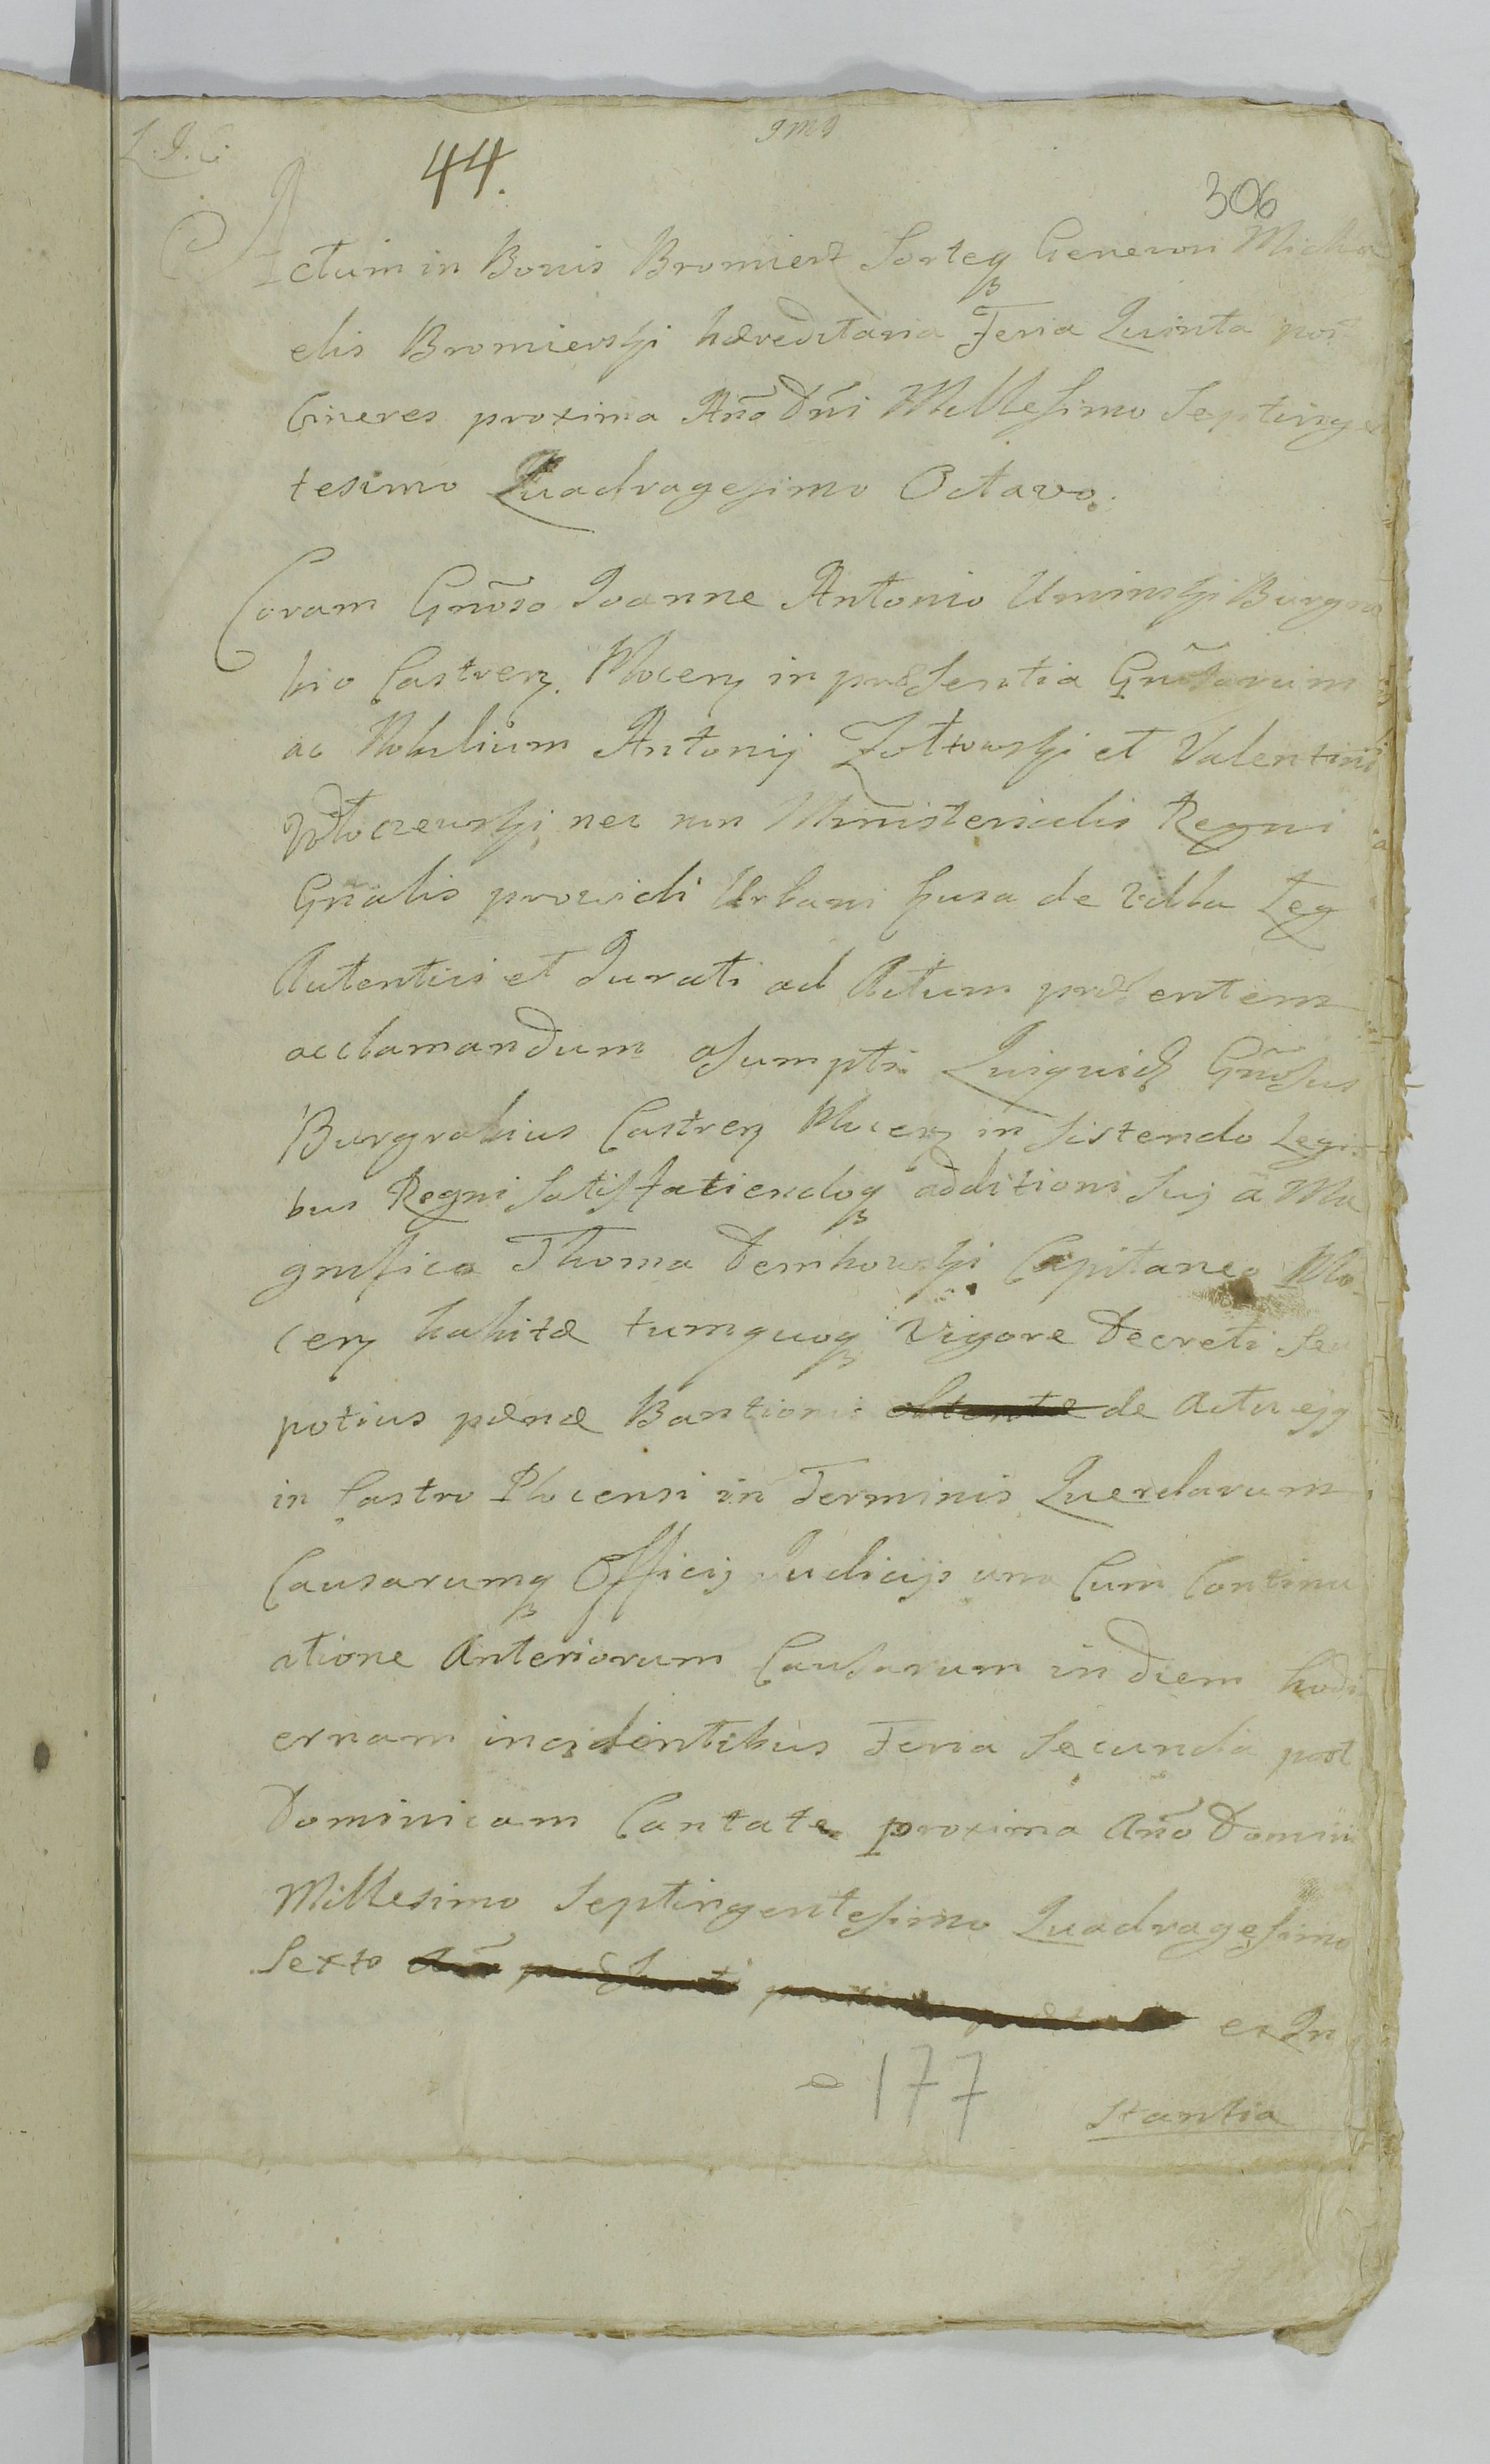 44.
306
Actum in Bonis Bromierz Sorteq Generosi Micha
elis Bromierski hæreditaria Feria Quinta post
Cineres proxima Año Dñi Millesimo Septingen
tesimo Quadragesimo Octavo.
Coram Gñoso Joanne Antonio Uminski Burgra
bio Castren. Plocen in præsentia Gñosorum
ac Nobilium Antonij Zołtowski et Valentini
Włoczewski nec non Ministerialis Regni
Gñalis providi Urbani Husa de Villa Łeg
Autentici et Jurati ad Actum præsentem
acclamandum assumpti. Quiquid Gñosus
Burgrabius Castren Plocen in sistendo Legi
bus Regni Satisfatiendoq additioni Suj a Ma
gnifico Thoma Dembowski Capitaneo Plo
cen habitæ tumquoq Vigore Decreti Seu
potius pænæ Banitionis obtentæ de Actu ejq
in Castro Plocensi in Terminis Querelarum
Causarumq Officij Judicijs una Cum Continu
atione Anteriorum Causarum in diem hodi
ernam incidentibus Feria Secunda post
Dominicam Cantate proxima Año Domini
Millesimo Septingentesimo Quadragesimo
Sexto ex In
177
stantia